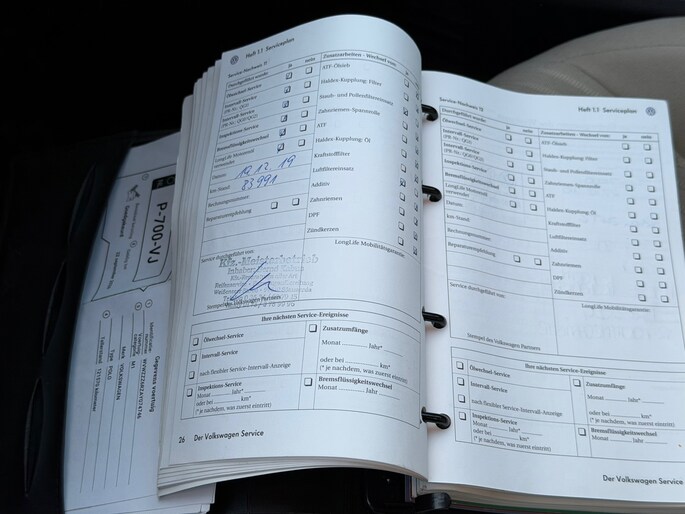 Heft 1.1 Serviceplan
Service-Nachweis
Durchgeführt wurde: ja nein
Ölwechsel-Service
Intervall-Service
Intervall-Service
Inspektions-Service
Bremsflüssigkeitswechsel
LongLife Motorenöl
verwendet
Datum 19.12.19
km-Stand 83991
Rechnungsnummer
Reparaturempfehlung
Zusatzarbeiten - Wechsel von: ja
ATF-Ölsieb
Haldex-Kupplung: Filter
Staub- und Pollenfiltereinsatz
Zahnriemen-Spannrolle
ATF
Haldex-Kupplung: Öl
Kraftstofffilter
Luftfiltereinsatz
Additiv
Zahnriemen
DPF
Zündkerzen
LongLife Mobilitätsgarantie
Service durchgeführt von:
Kfz.-Meisterbetrieb
Stempel des Volkswagen Partners
Ihre nächsten Service-Ereignisse
Ölwechsel-Service
Intervall-Service
nach flexibler Service-Intervall-Anzeige
Inspektions-Service
Monat Jahr*
oder bei km*
(* je nachdem, was zuerst eintritt)
Zusatzumfänge
Monat Jahr*
oder bei km*
(* je nachdem, was zuerst eintritt)
Bremsflüssigkeitswechsel
Monat Jahr
26 Der Volkswagen Service
Service-Nachweis
Heft 1.1 Serviceplan
Durchgeführt wurde: ja nein
Ölwechsel-Service
Intervall-Service
Intervall-Service
Inspektions-Service
Bremsflüssigkeitswechsel
LongLife Motorenöl
verwendet
Datum
km-Stand
Rechnungsnummer
Reparaturempfehlung
Zusatzarbeiten - Wechsel von: ja nein
ATF-Ölsieb
Haldex-Kupplung: Filter
Staub- und Pollenfiltereinsatz
Zahnriemen-Spannrolle
ATF
Haldex-Kupplung: Öl
Kraftstofffilter
Luftfiltereinsatz
Additiv
Zahnriemen
DPF
Zündkerzen
LongLife Mobilitätsgarantie
Service durchgeführt von:
Stempel des Volkswagen Partners
Ihre nächsten Service-Ereignisse
Ölwechsel-Service
Intervall-Service
nach flexibler Service-Intervall-Anzeige
Inspektions-Service
Monat Jahr*
oder bei km*
(* je nachdem, was zuerst eintritt)
Zusatzumfänge
Monat Jahr*
oder bei km*
(* je nachdem, was zuerst eintritt)
Bremsflüssigkeitswechsel
Monat Jahr
Der Volkswagen Service
P-700-VJ
Gegevens voertuig
Merk VOLKSWAGEN
Type POLO